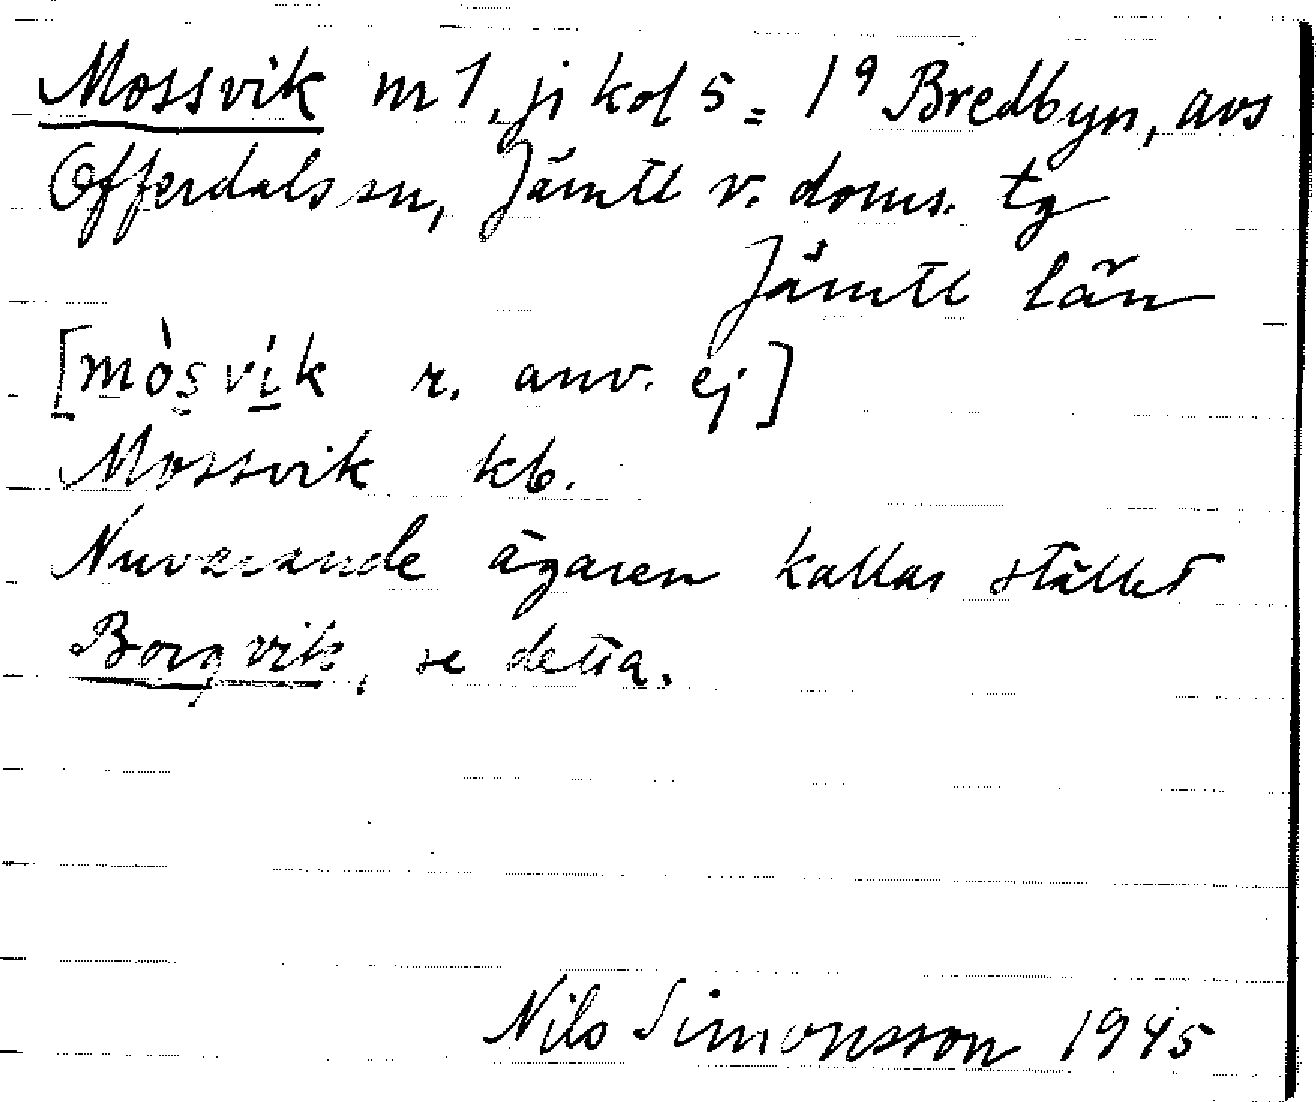 Mossvik m 1, ji kol 5 = 1⁹ Bredbyn, avs
Offerdals sn, Jämtl v. doms. tg
Jämtl län
[mòsvi̇̀k r. anv. ej]
Mossvik kb.
Nuvarande ägaren kallar stället
Borgvik, se detta.
Nils Simonsson 1945